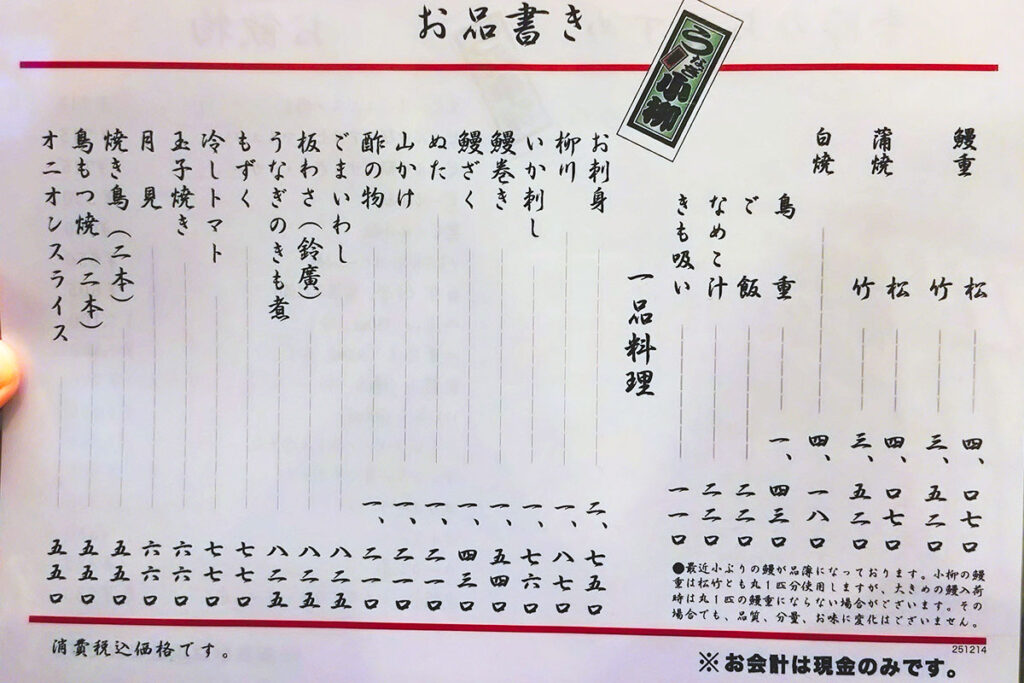 お品書き
うなぎ小柳
鰻重 松 四、〇七〇
竹 三、五二〇
蒲焼 松 四、〇七〇
竹 三、五二〇
白焼 四、一八〇
鳥重 一、四三〇
ご飯 二二〇
なめこ汁 二二〇
きも吸い 一一〇
一品料理
お刺身 二、七五〇
柳川 一、八七〇
いか刺し 一、七六〇
鰻巻き 一、五四〇
鰻ざく 一、四三〇
ぬた 一、二一〇
山かけ 一、二一〇
酢の物 一、二一〇
ごまいわし 八二五
板わさ(鈴廣) 八二五
うなぎのきも煮 八二五
もずく 七七〇
冷しトマト 七七〇
玉子焼き 六六〇
月見 六六〇
焼き鳥(二本) 五五〇
鳥もつ焼(二本) 五五〇
オニオンスライス 五五〇
●最近小ぶりの鰻が品薄になっております。小柳の鰻
重は松竹とも丸1匹分使用しますが、大きめの鰻入荷
時は丸1匹の鰻重にならない場合がございます。その
場合でも、品質、分量、お味に変化はございません。
251214
消費税込価格です。
※お会計は現金のみです。